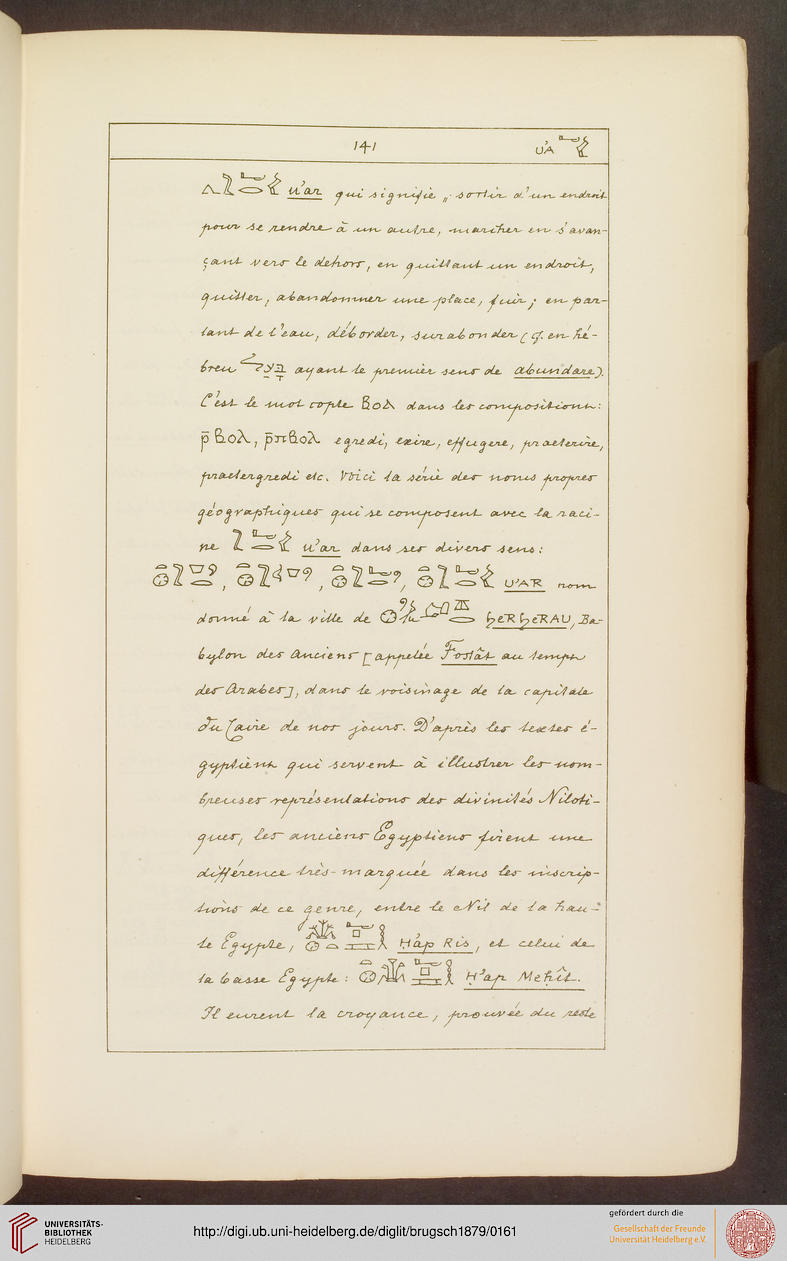 141 U'A
u'ar qui signifie „ sortir d'un endroit
pour se rendre à un autre, marcher en s'avan-
çant vers le dehors, en quittant un endroit,
quitter, abandonner une place, fuir; en par-
lant de l'eau, déborder, surabonder (cf. en hé-
breu ayant le premier sens de abundare).
C'est le mot copte ⲃⲟⲗ dans les compositions:
ⲣ̄ⲃⲟⲗ, ⲣ̄ⲡⲃⲟⲗ egredi, exire, effugere, praeterire,
praetergredi etc. Voici la série des noms propres
géographiques qui se composent avec la raci-
ne u'ar dans ses divers sens:
, , , U'AR nom
donné à la ville de ḫeRḫeRAU, Ba-
bylon des Anciens [appelée Fostât au temps
des Arabes], dans le voisinage de la capitale
du Caire de nos jours. D'après les textes é-
gyptiens qui servent à illustrer les nom-
breuses représentations des divinités Niloti-
ques, les anciens Egyptiens firent une
différence très-marquée dans les inscrip-
tions de ce genre, entre le Nil de la hau-
te Egypte, Ḥ'âp Ris, et celui de
la basse Egypte: Ḥ'ap Meḥît.
Il eurent la croyance, prouvée du reste
UNIVERSITÄTS-
BIBLIOTHEK
HEIDELBERG
http://digi.ub.uni-heidelberg.de/diglit/brugsch1879/0161
gefördert durch die
Gesellschaft der Freunde
Universität Heidelberg e.V.